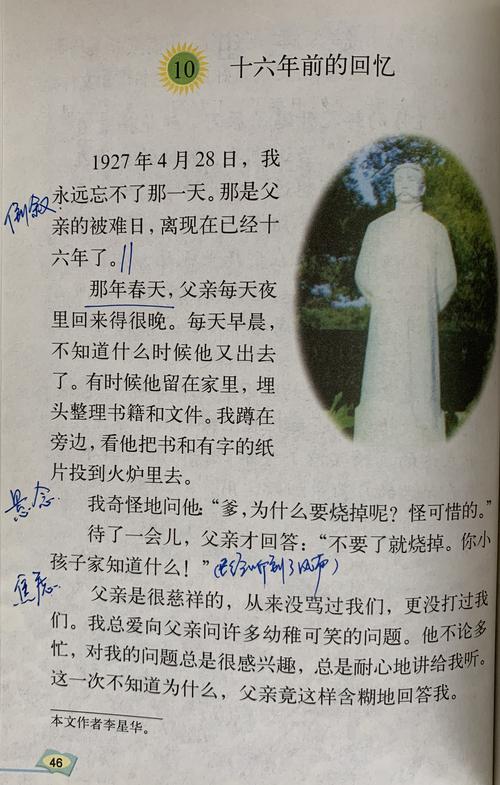 10 十六年前的回忆
1927年4月28日，我
永远忘不了那一天。那是父
倒叙
亲的被难日，离现在已经十
六年了。
那年春天，父亲每天夜
里回来得很晚。每天早晨，
不知道什么时候他又出去
了。有时候他留在家里，埋
头整理书籍和文件。我蹲在
旁边，看他把书和有字的纸
片投到火炉里去。
悬念
我奇怪地问他：“爹，为什么要烧掉呢？怪可惜的。”
待了一会儿，父亲才回答：“不要了就烧掉。你小
孩子家知道什么！”（已经听到了风声）
焦虑
父亲是很慈祥的，从来没骂过我们，更没打过我
们。我总爱向父亲问许多幼稚可笑的问题。他不论多
忙，对我的问题总是很感兴趣，总是耐心地讲给我听。
这一次不知道为什么，父亲竟这样含糊地回答我。
本文作者李星华。
46